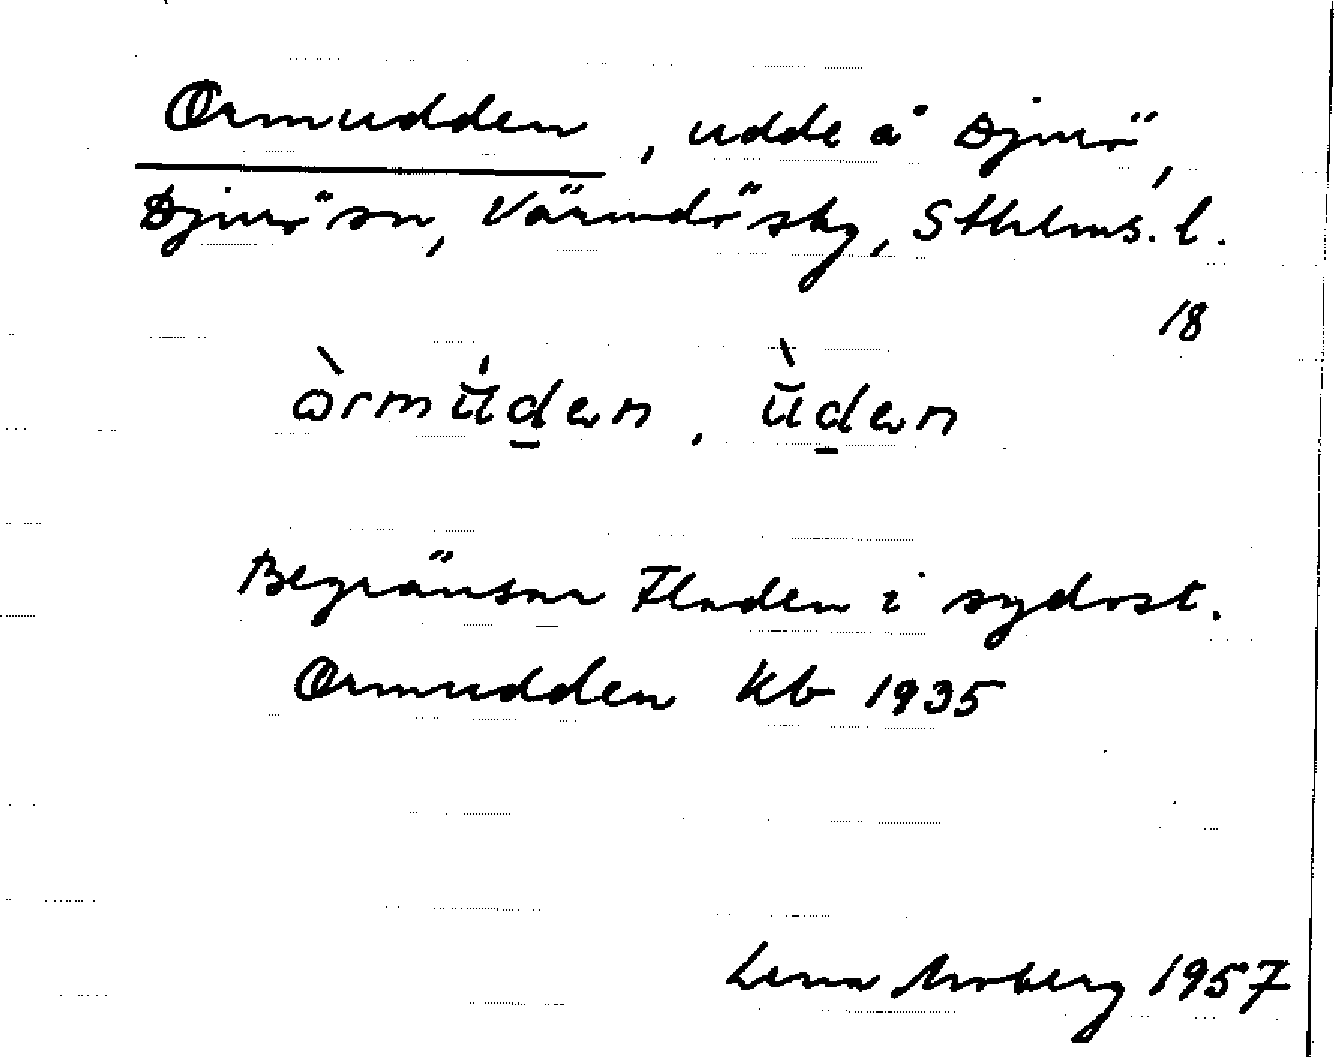 Ormudden, udde å Djurö,
Djurö sn, Värmdö skg, Sthlms. l.
18
òrmúden, ùden
Begränsar Fladen i sydost.
Ormudden Kb 1935
Lena Moberg 1957